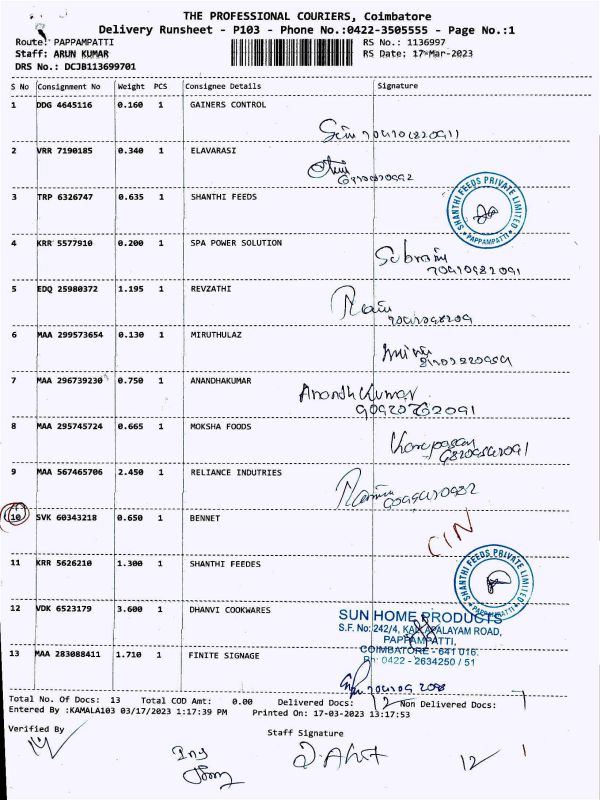 THE PROFESSIONAL COURIERS, Coimbatore
Delivery Runsheet - P103 - Phone No.:0422-3505555 - Page No.:1
Route: PAPPAMPATTI
RS No.: 1136997
Staff: ARUN KUMAR
RS Date: 17-Mar-2023
DRS No.: DCJB113699701
S No Consignment No Weight PCS Consignee Details Signature
1 DDG 4645116 0.160 1 GAINERS CONTROL
2 VRR 7190185 0.340 1 ELAVARASI
3 TRP 6326747 0.635 1 SHANTHI FEEDS
SHANTHI FEEDS PRIVATE LIMITED
* PAPPAMPATTI *
4 KRR 5577910 0.200 1 SPA POWER SOLUTION
5 EDQ 25980372 1.195 1 REVZATHI
6 MAA 299573654 0.130 1 MIRUTHULAZ
7 MAA 296739230 0.750 1 ANANDHAKUMAR
Anandh Kumar
8 MAA 295745724 0.665 1 MOKSHA FOODS
9 MAA 567465706 2.450 1 RELIANCE INDUTRIES
10 SVK 60343218 0.650 1 BENNET
CIN
11 KRR 5626210 1.300 1 SHANTHI FEEDES
SHANTHI FEEDS PRIVATE LIMITED
* PAPPAMPATTI *
12 VDK 6523179 3.600 1 DHANVI COOKWARES
SUN HOME PRODUCTS
S.F. No: 242/4, ROAD,
PAPPAMPATTI,
COIMBATORE - 641 016.
Ph: 0422 - 2634250 / 51
13 MAA 283088411 1.710 1 FINITE SIGNAGE
Total No. Of Docs: 13 Total COD Amt: 0.00 Delivered Docs: 12 Non Delivered Docs: 1
Entered By :KAMALA103 03/17/2023 1:17:39 PM Printed On: 17-03-2023 13:17:53
Verified By
Staff Signature
12 1